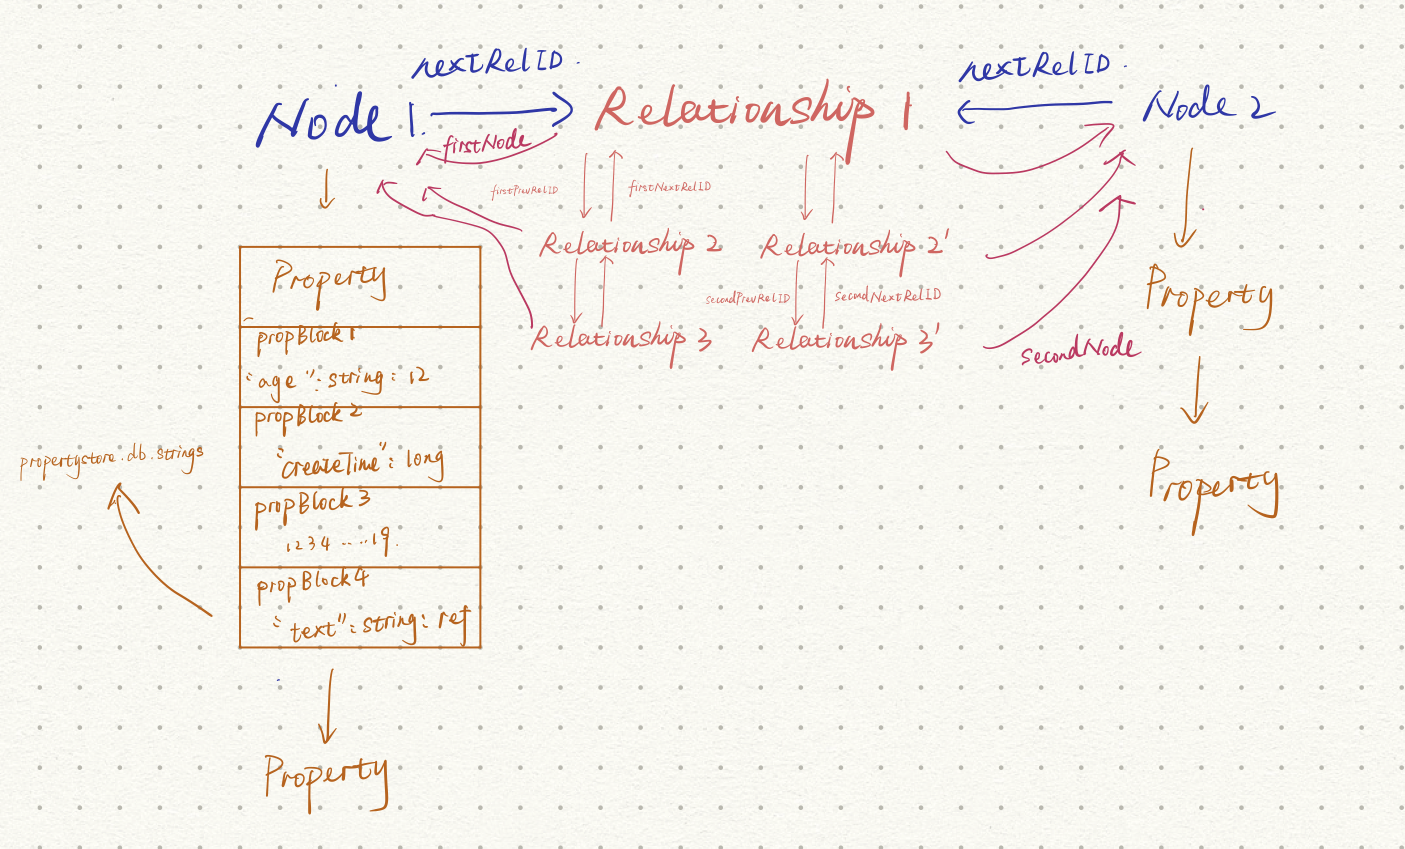 nextRelID.
nextRelID.
Node 1.
Relationship 1
Node 2
firstNode
firstPrevRelID
firstNextRelID
Relationship 2
Relationship 2'
Property
Property
secondPrevRelID
secondNextRelID
propBlock 1
Relationship 3
Relationship 3'
secondNode
"age": string: 12
propBlock 2
propertystore.db.strings
"createTime": long
Property
propBlock 3
1234 ....19.
propBlock 4
"text": string: ref
Property